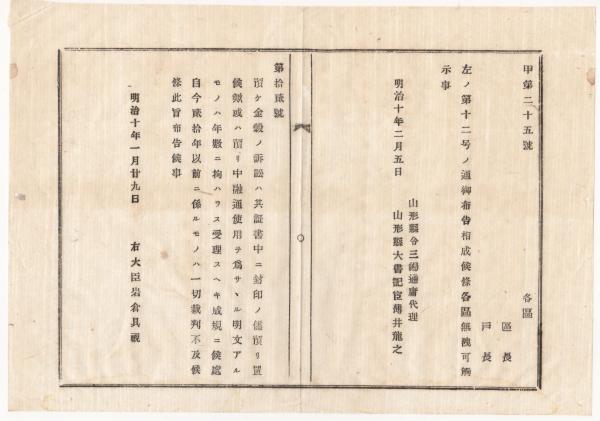 甲第二十五號
各區
區長
戸長
左ノ第十二号ノ通御布告相成候條各區無洩可觸
示事
明治十年二月五日
山形縣令三島通庸代理
山形縣大書記官薄井龍之
第拾貳號
預ケ金穀ノ訴訟ハ其証書中ニ封印ノ儘預リ置
候歟或ハ預リ中融通使用ヲ爲サヽル明文アル
モノハ年數ニ拘ハラス受理スヘキ成規ニ候處
自今貳拾年以前ニ係ルモノハ一切裁判不及候
條此旨布告候事
明治十年一月廿九日
右大臣岩倉具視